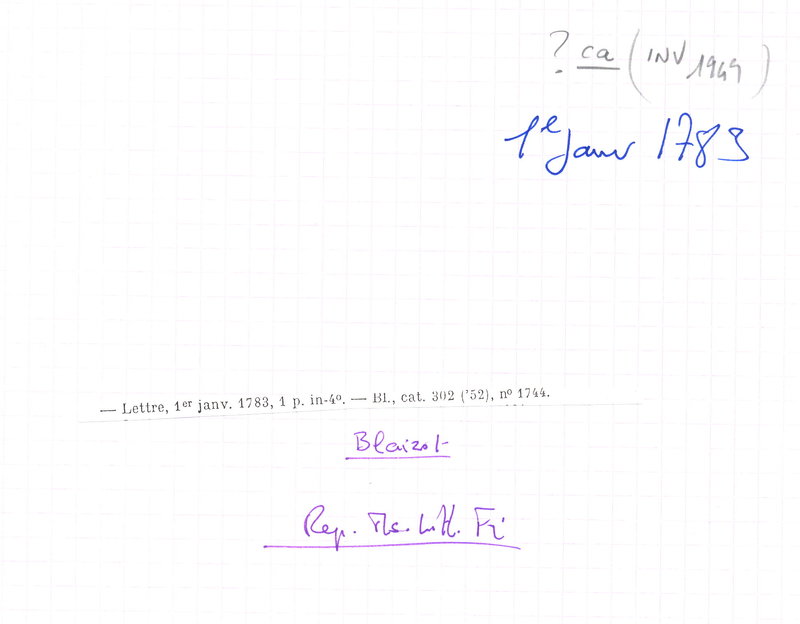 ? ca (INV 1949)
1e Janv 1783
— Lettre, 1er janv. 1783, 1 p. in-4o. — Bl., cat. 302 ('52), no 1744.
Blaizot
Rep. Ms. Litt. Fr